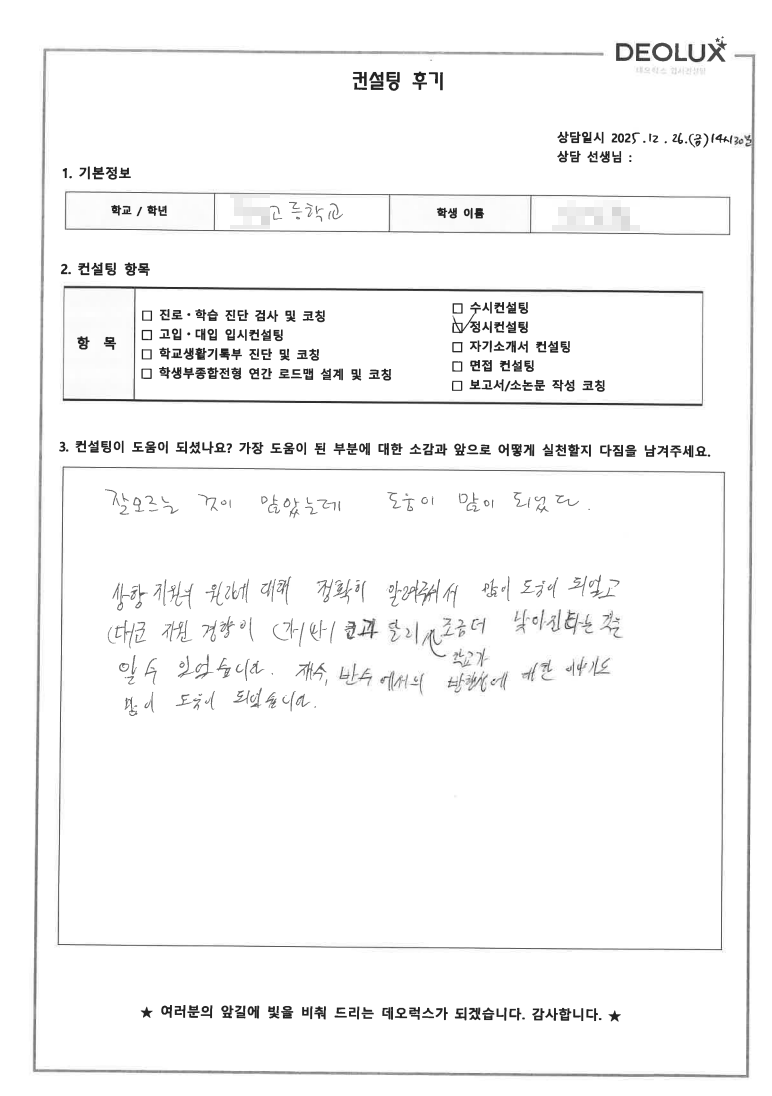 DEOLUX
데오럭스 입시컨설팅
컨설팅 후기
상담일시 2025.12.26.(금)14시30분
상담 선생님 :
1. 기본정보
학교 / 학년
고등학교
학생 이름
2. 컨설팅 항목
항 목
□ 진로·학습 진단 검사 및 코칭
□ 고입·대입 입시컨설팅
□ 학교생활기록부 진단 및 코칭
□ 학생부종합전형 연간 로드맵 설계 및 코칭
□ 수시컨설팅
☑ 정시컨설팅
□ 자기소개서 컨설팅
□ 면접 컨설팅
□ 보고서/소논문 작성 코칭
3. 컨설팅이 도움이 되셨나요? 가장 도움이 된 부분에 대한 소감과 앞으로 어떻게 실천할지 다짐을 남겨주세요.
잘모르는 것이 많았는데 도움이 많이 되었다.
상향 지원의 원리에 대해 정확히 알려주셔서 많이 도움이 되었고
(다)군 지원 경향이 (가)(나) 군과 달리 조금더 낮아진다는 것을
학교가
알 수 있었습니다. 재수, 반수에서의 방향성에 대한 이야기도
많이 도움이 되었습니다.
★ 여러분의 앞길에 빛을 비춰 드리는 데오럭스가 되겠습니다. 감사합니다. ★